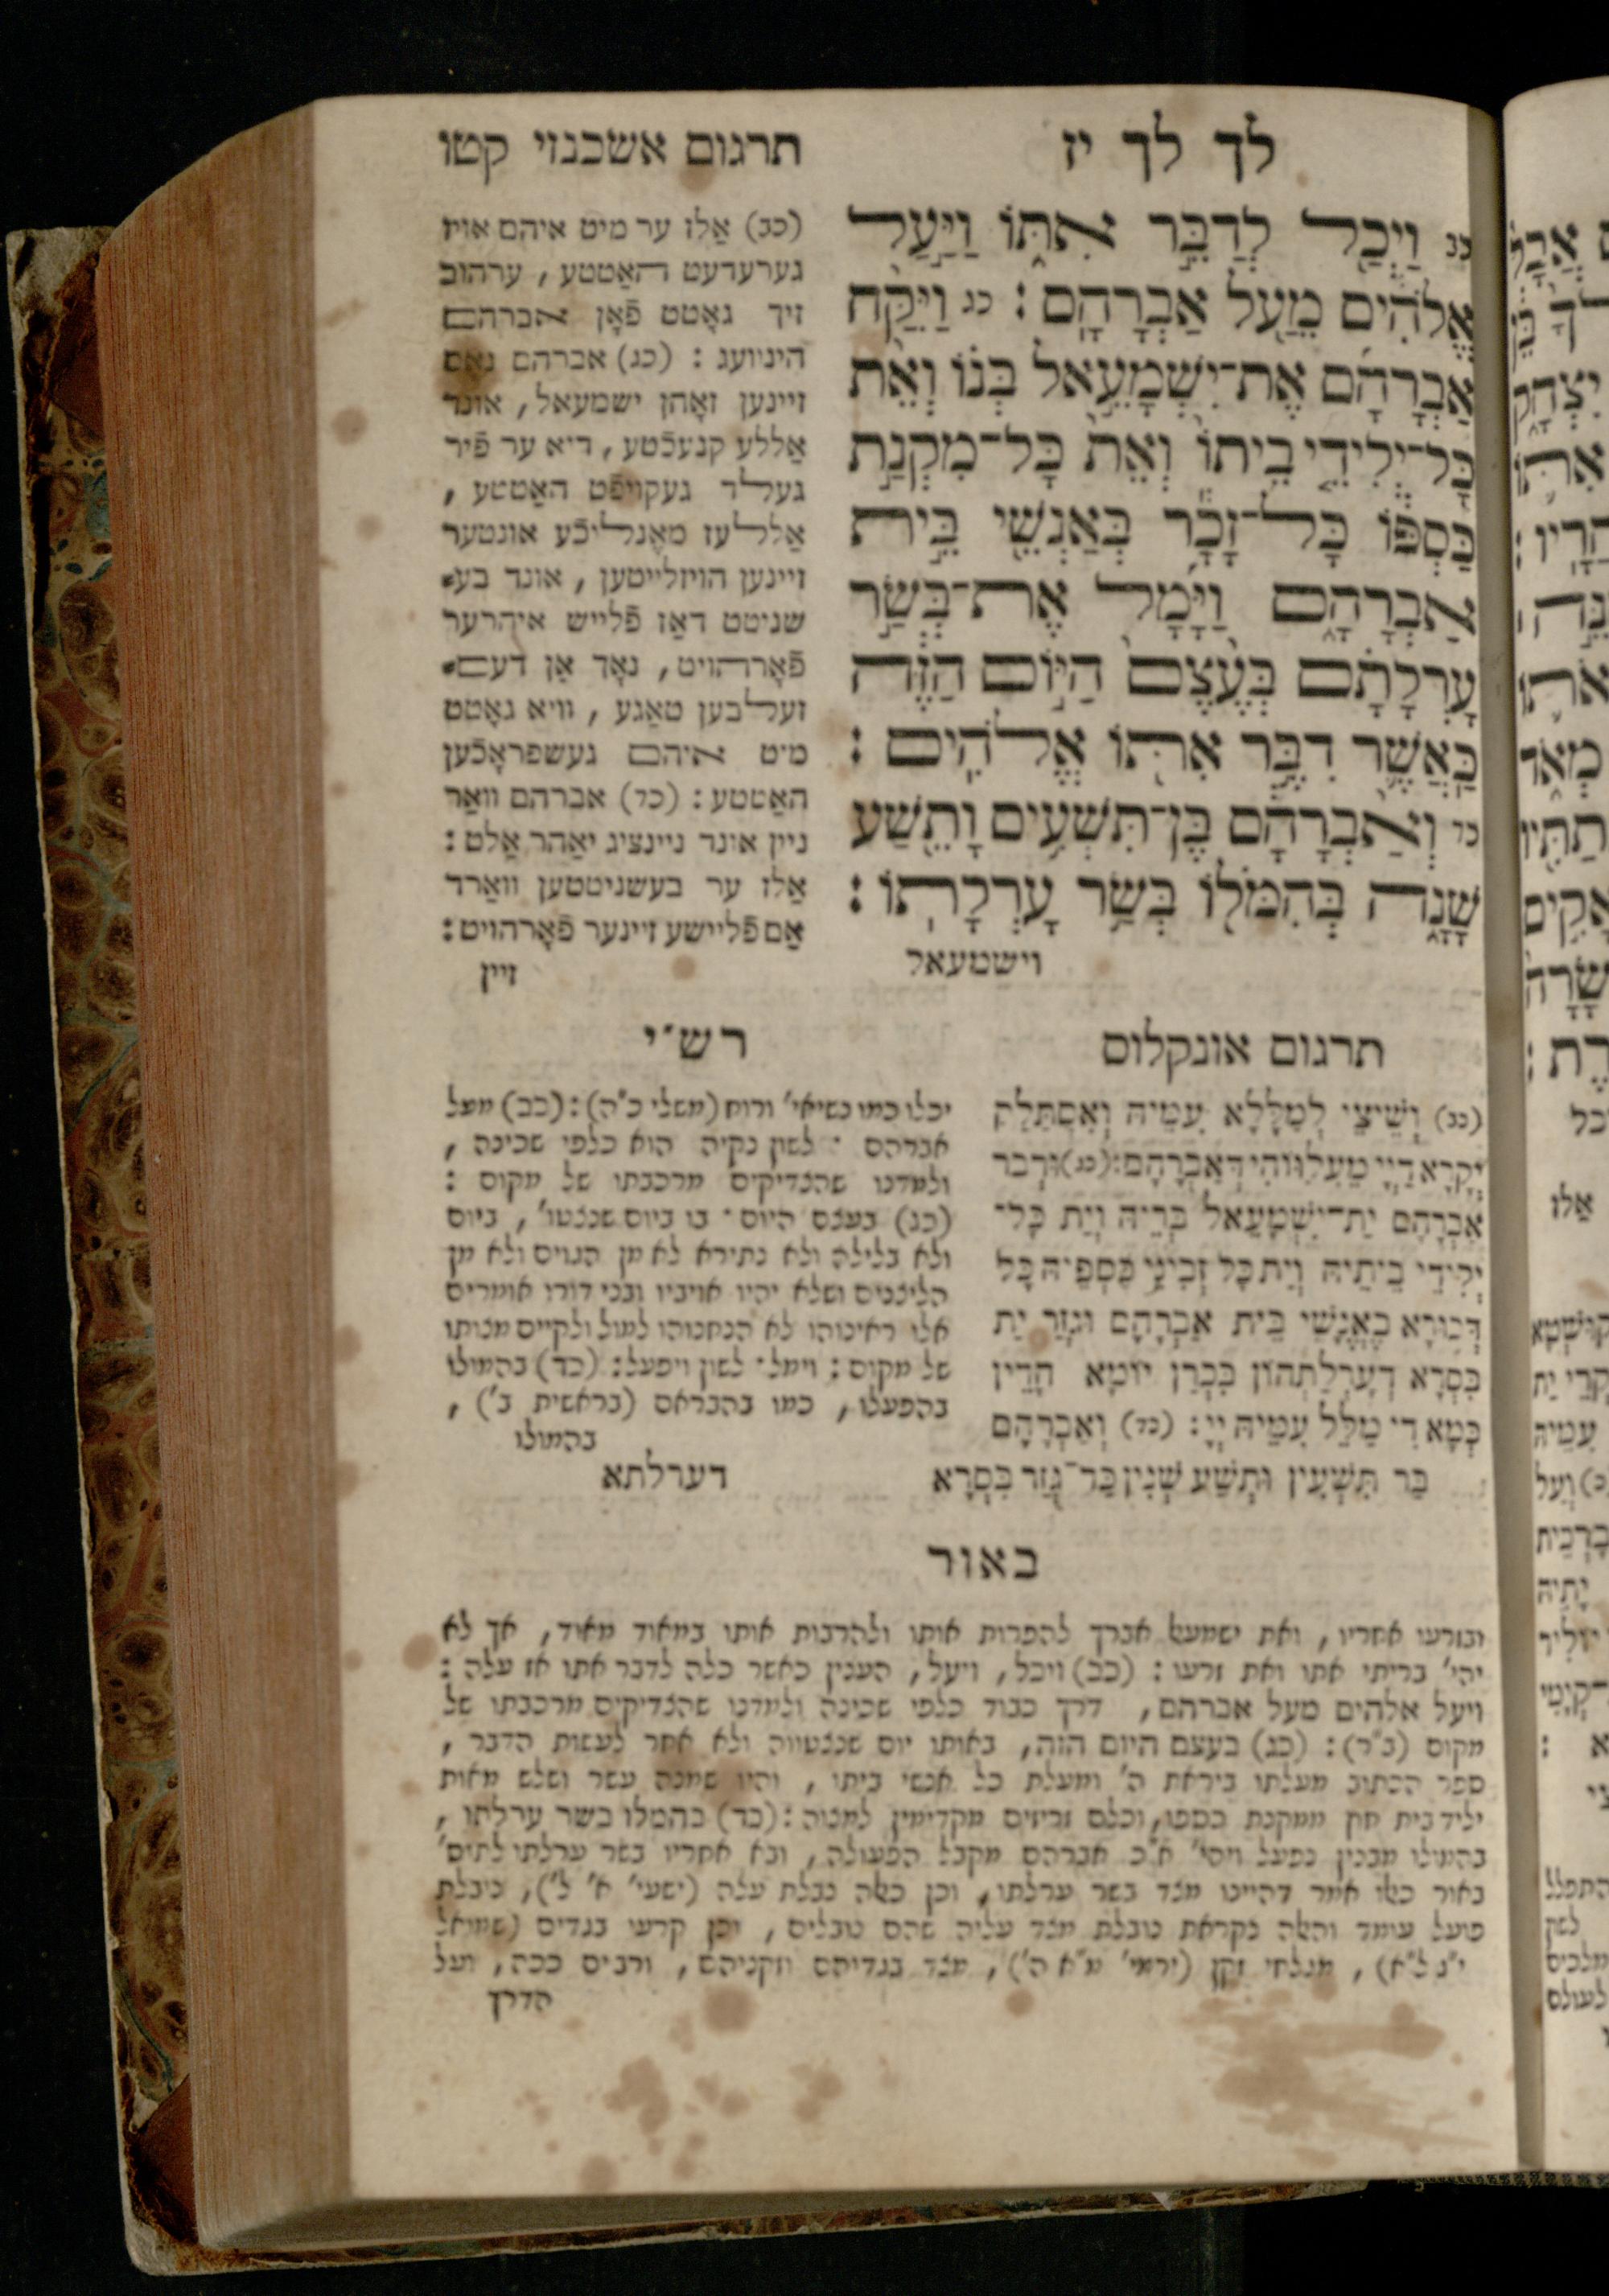 לך לך יז
תרגום אשכנזי קטו
כב וַיְכַל לְדַבֵּר אִתּוֹ וַיַּעַל
אֱלֹהִים מֵעַל אַבְרָהָם : כג וַיִּקַּח
אַבְרָהָם אֶת־יִשְׁמָעֵאל בְּנוֹ וְאֵת
כָּל־יְלִידֵי בֵיתוֹ וְאֵת כָּל־מִקְנַת
כַּסְפּוֹ כָּל־זָכָר בְּאַנְשֵׁי בֵּית
אַבְרָהָם וַיָּמָל אֶת־בְּשַׂר
עָרְלָתָם בְּעֶצֶם הַיּוֹם הַזֶּה
כַּאֲשֶׁר דִּבֶּר אִתּוֹ אֱלֹהִים :
כד וְאַבְרָהָם בֶּן־תִּשְׁעִים וָתֵשַׁע
שָׁנָה בְּהִמֹּלוֹ בְּשַׂר עָרְלָתוֹ :
וישמעאל
(כב) אַלז ער מיט איהם אויז
גערעדעט האַטטע , ערהוב
זיך גאָטט פֿאָן אברהם
הינוועג : (כג) אברהם נאַם
זיינען זאָהן ישמעאל , אונד
אַללע קנעכֿטע , דיא ער פֿיר
געלד געקויפֿט האַטטע ,
אַללעז מאֶנליכֿע אונטער
זיינען הויזלייטען , אונד בע⸗
שניטט דאַז פֿלייש איהרער
פֿאָרהויט , נאָך אַן דעם⸗
זעלבען טאַגע , וויא גאָטט
מיט איהם געשפראָכֿען
האַטטע : (כד) אברהם וואַר
ניין אונד ניינציג יאַהר אַלט :
אַלז ער בעשניטטען וואַרד
אַם פֿליישע זיינער פֿאָרהויט :
זיין
תרגום אונקלוס
(כב) וְשֵׁיצֵי לְמַלָּלָא עִמֵּיהּ וְאִסְתַּלַּק
יְקָרָא דַיְיָ מֵעִלָּווֹהִי דְּאַבְרָהָם : (כג) וּדְבַר
אַבְרָהָם יַת־יִשְׁמָעֵאל בְּרֵיהּ וְיַת כָּל־
יְלִידֵי בֵיתֵיהּ וְיַת כָּל זְבִינֵי כַסְפֵּיהּ כָּל
דְּכוּרָא בֶּאֱנָשֵׁי בֵּית אַבְרָהָם וּגְזַר יַת
בִּסְרָא דְעָרְלַתְהוֹן בִּכְרַן יוֹמָא הָדֵין
כְּמָא דִי מַלֵּל עִמֵּיהּ יְיָ : (כד) וְאַבְרָהָם
בַּר תִּשְׁעִין וּתְשַׁע שְׁנִין כַּד־גְּזַר בִּסְרָא
דערלתא
רש״י
יכלו כמו נשיאי׳ ורוח (משלי כ״ה) : (כב) מעל
אברהם · לשון נקיה הוא כלפי שכינה ,
ולמדנו שהצדיקים מרכבתו של מקום :
(כג) בעצם היום · בו ביום שנצטו׳ , ביום
ולא בלילה ולא נתירא לא מן הגוים ולא מן
הליצנים ושלא יהיו אויביו ובני דורו אומרים
אלו ראינוהו לא הנחנוהו למול ולקיים מצותו
של מקום : וימל · לשון ויפעל : (כד) בהמולו
בהפעלו , כמו בהבראם (בראשית ב׳) ,
בהמולו
באור
ובזרעו אחריו , ואת ישמעאל אברך להפרות אותו ולהרבות אותו במאוד מאוד , אך לא
יהי׳ בריתי אתו ואת זרעו : (כב) ויכל , ויעל , הענין כאשר כלה לדבר אתו אז עלה :
ויעל אלהים מעל אברהם , דרך כבוד כלפי שכינה ולמדנו שהצדיקים מרכבתו של
מקום (ב״ר) : (כג) בעצם היום הזה , באותו יום שנצטווה ולא אחר לעשות הדבר ,
ספר הכתוב מעלתו ביראת ה׳ ומעלת כל אנשי ביתו , והיו שמנה עשר ושלש מאות
יליד בית חוץ ממקנת כספו , וכלם זריזים מקדימין למצוה : (כד) בהמלו בשר ערלתו ,
בהמולו מבנין נפעל ויהי׳ א״כ אברהם מקבל הפעולה , ובא אחריו בשר ערלתו לתוס׳
באור כאלו אמר דהיינו מצד בשר ערלתו , וכן כאלה נבלת עלה (ישעי׳ א׳ ל׳) , נובלת
פועל עומד והאלה נקראת נובלת מצד עליה שהם נובלים , וכן קרעי בגדים (שמואל
י״ג ל״א) , מגלחי זקן (ירמי׳ מ״א ה׳) , מצד בגדיהם וזקניהם , ורבים ככה , ועל
הדרך